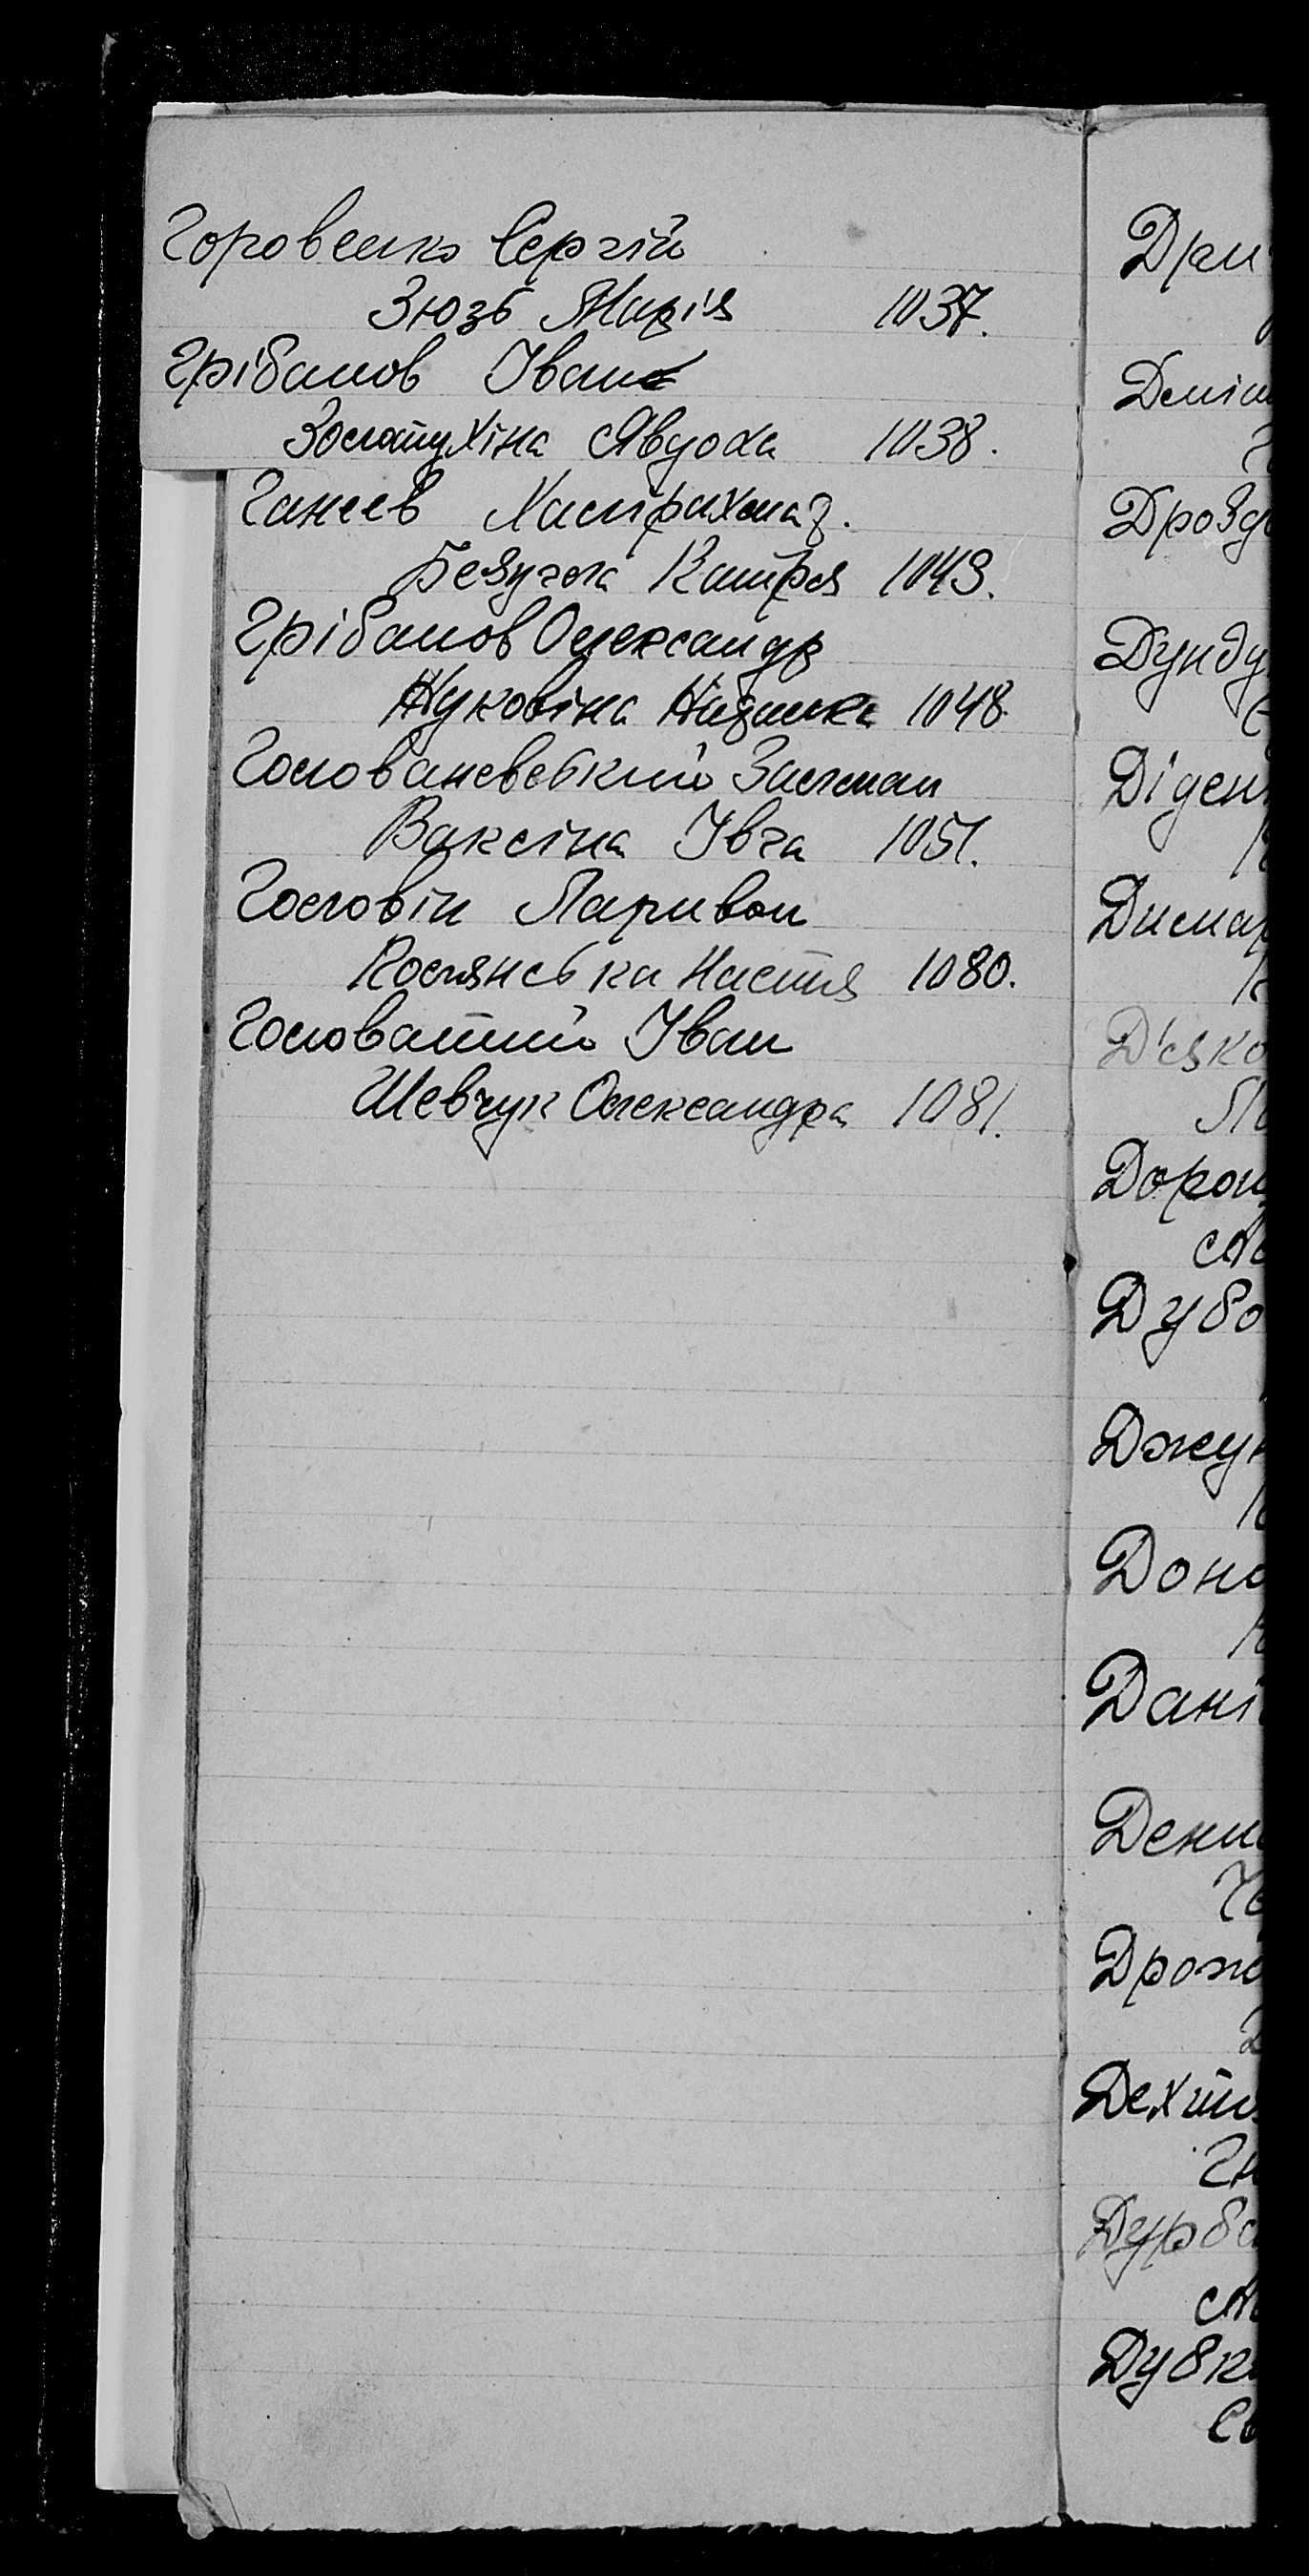 Горовенко Сергій
Зюзь Марія 1037.
Грібанов Іван
Золотухіна Явдоха 1038.
Ганеев
Безугла Катря 1043.
Грібанов Олександр
Жуковіна 1048
Голованевський Залман
Ваксіна Івга 1051.
Головін Ларивон
Колянська Настя 1080.
Головатий Іван
Шевчук Олександра 1081.
Дри
Деніш
Дрозд
Дунду
Діден
Димар
Д'яко
Дорош
Дубо
Джу
Доно
Дані
Дени
Дрож
Дехтя
Гн
Дурба
Дубк